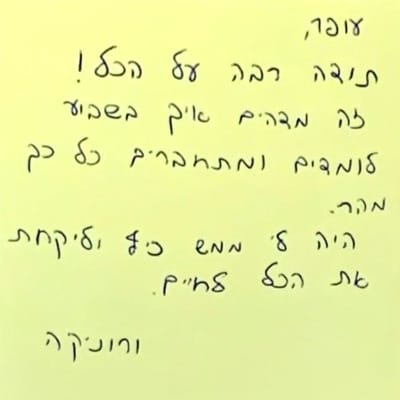 עופר,
תודה רבה על הכל!
זה מדהים איך בשבוע
לומדים ומתחברים כל כך
מהר.
היה לי ממש כיף וליקחת
את הכל לחיים.
ורוניקה